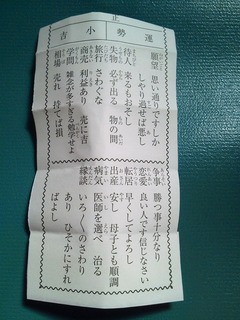 運勢 小吉
願望 思い通りですしか
しやり過せば悪し
待人 来るもおそし
失物 必ず出る 物の間
旅行 さわぐな
商売 利益あり 売に吉
学問 雑念が多すぎる勉学せよ
相場 売れ 持てば損
争事 勝つ事十分なり
恋愛 良い人です信じなさい
転居 早くしてよろし
出産 安し 母子とも順調
病気 医師を選べ 治る
縁談 いろ〱のさわり
あり ひそかにすれ
ばよし